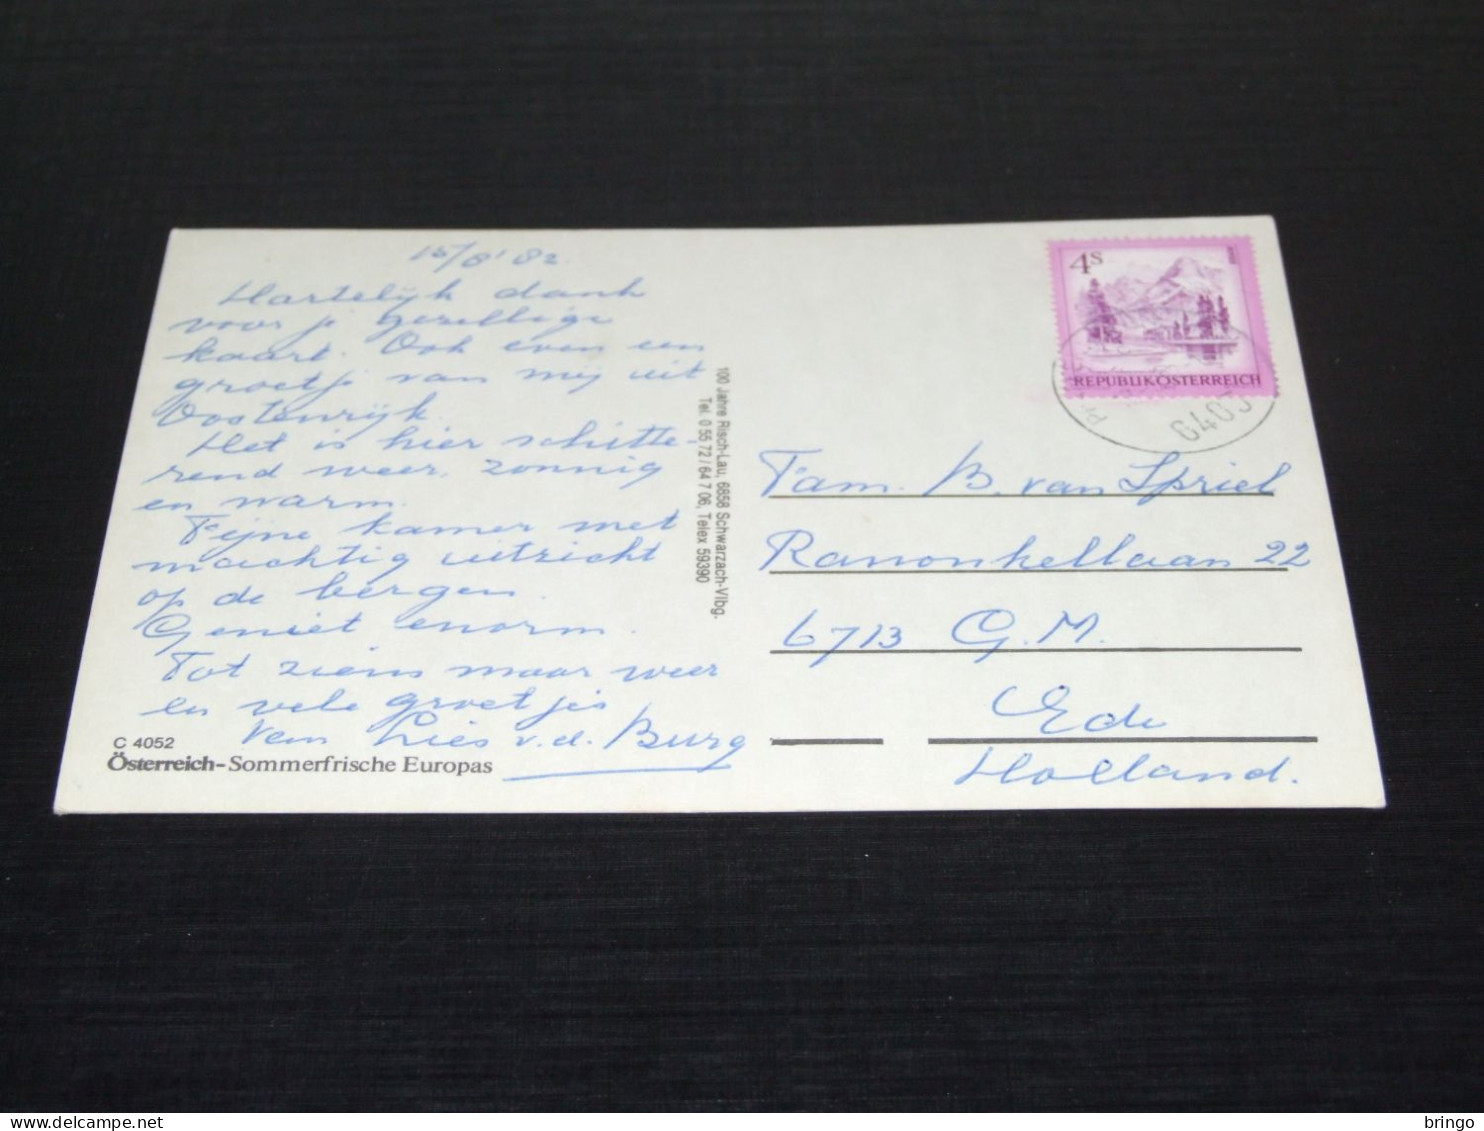 15/8'82
Hartelijk dank
voor je gezellige
kaart. Ook even een
groetje van mij uit
Oostenrijk.
Het is hier schitte-
rend weer, zonnig
en warm.
Fijne kamer met
machtig uitzicht
op de bergen.
Geniet enorm.
Tot ziens maar weer
en vele groetjes
van Lies v.d. Burg
C 4052
Österreich-Sommerfrische Europas
100 Jahre Risch-Lau, 6858 Schwarzach-Vlbg.
Tel. 0 55 72 / 64 7 06, Telex 59390
4S
REPUBLIK ÖSTERREICH
Fam. B. van Spriel
Ranonkellaan 22
6713 G.M.
Ede
Holland.
bringo